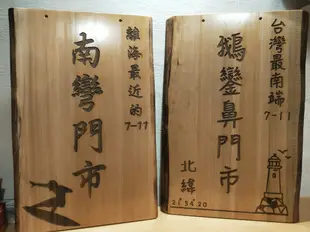 離海最近的
7-11
南彎門市
台灣最南端
7-11
鵝鑾鼻門市
北緯
21°54'20